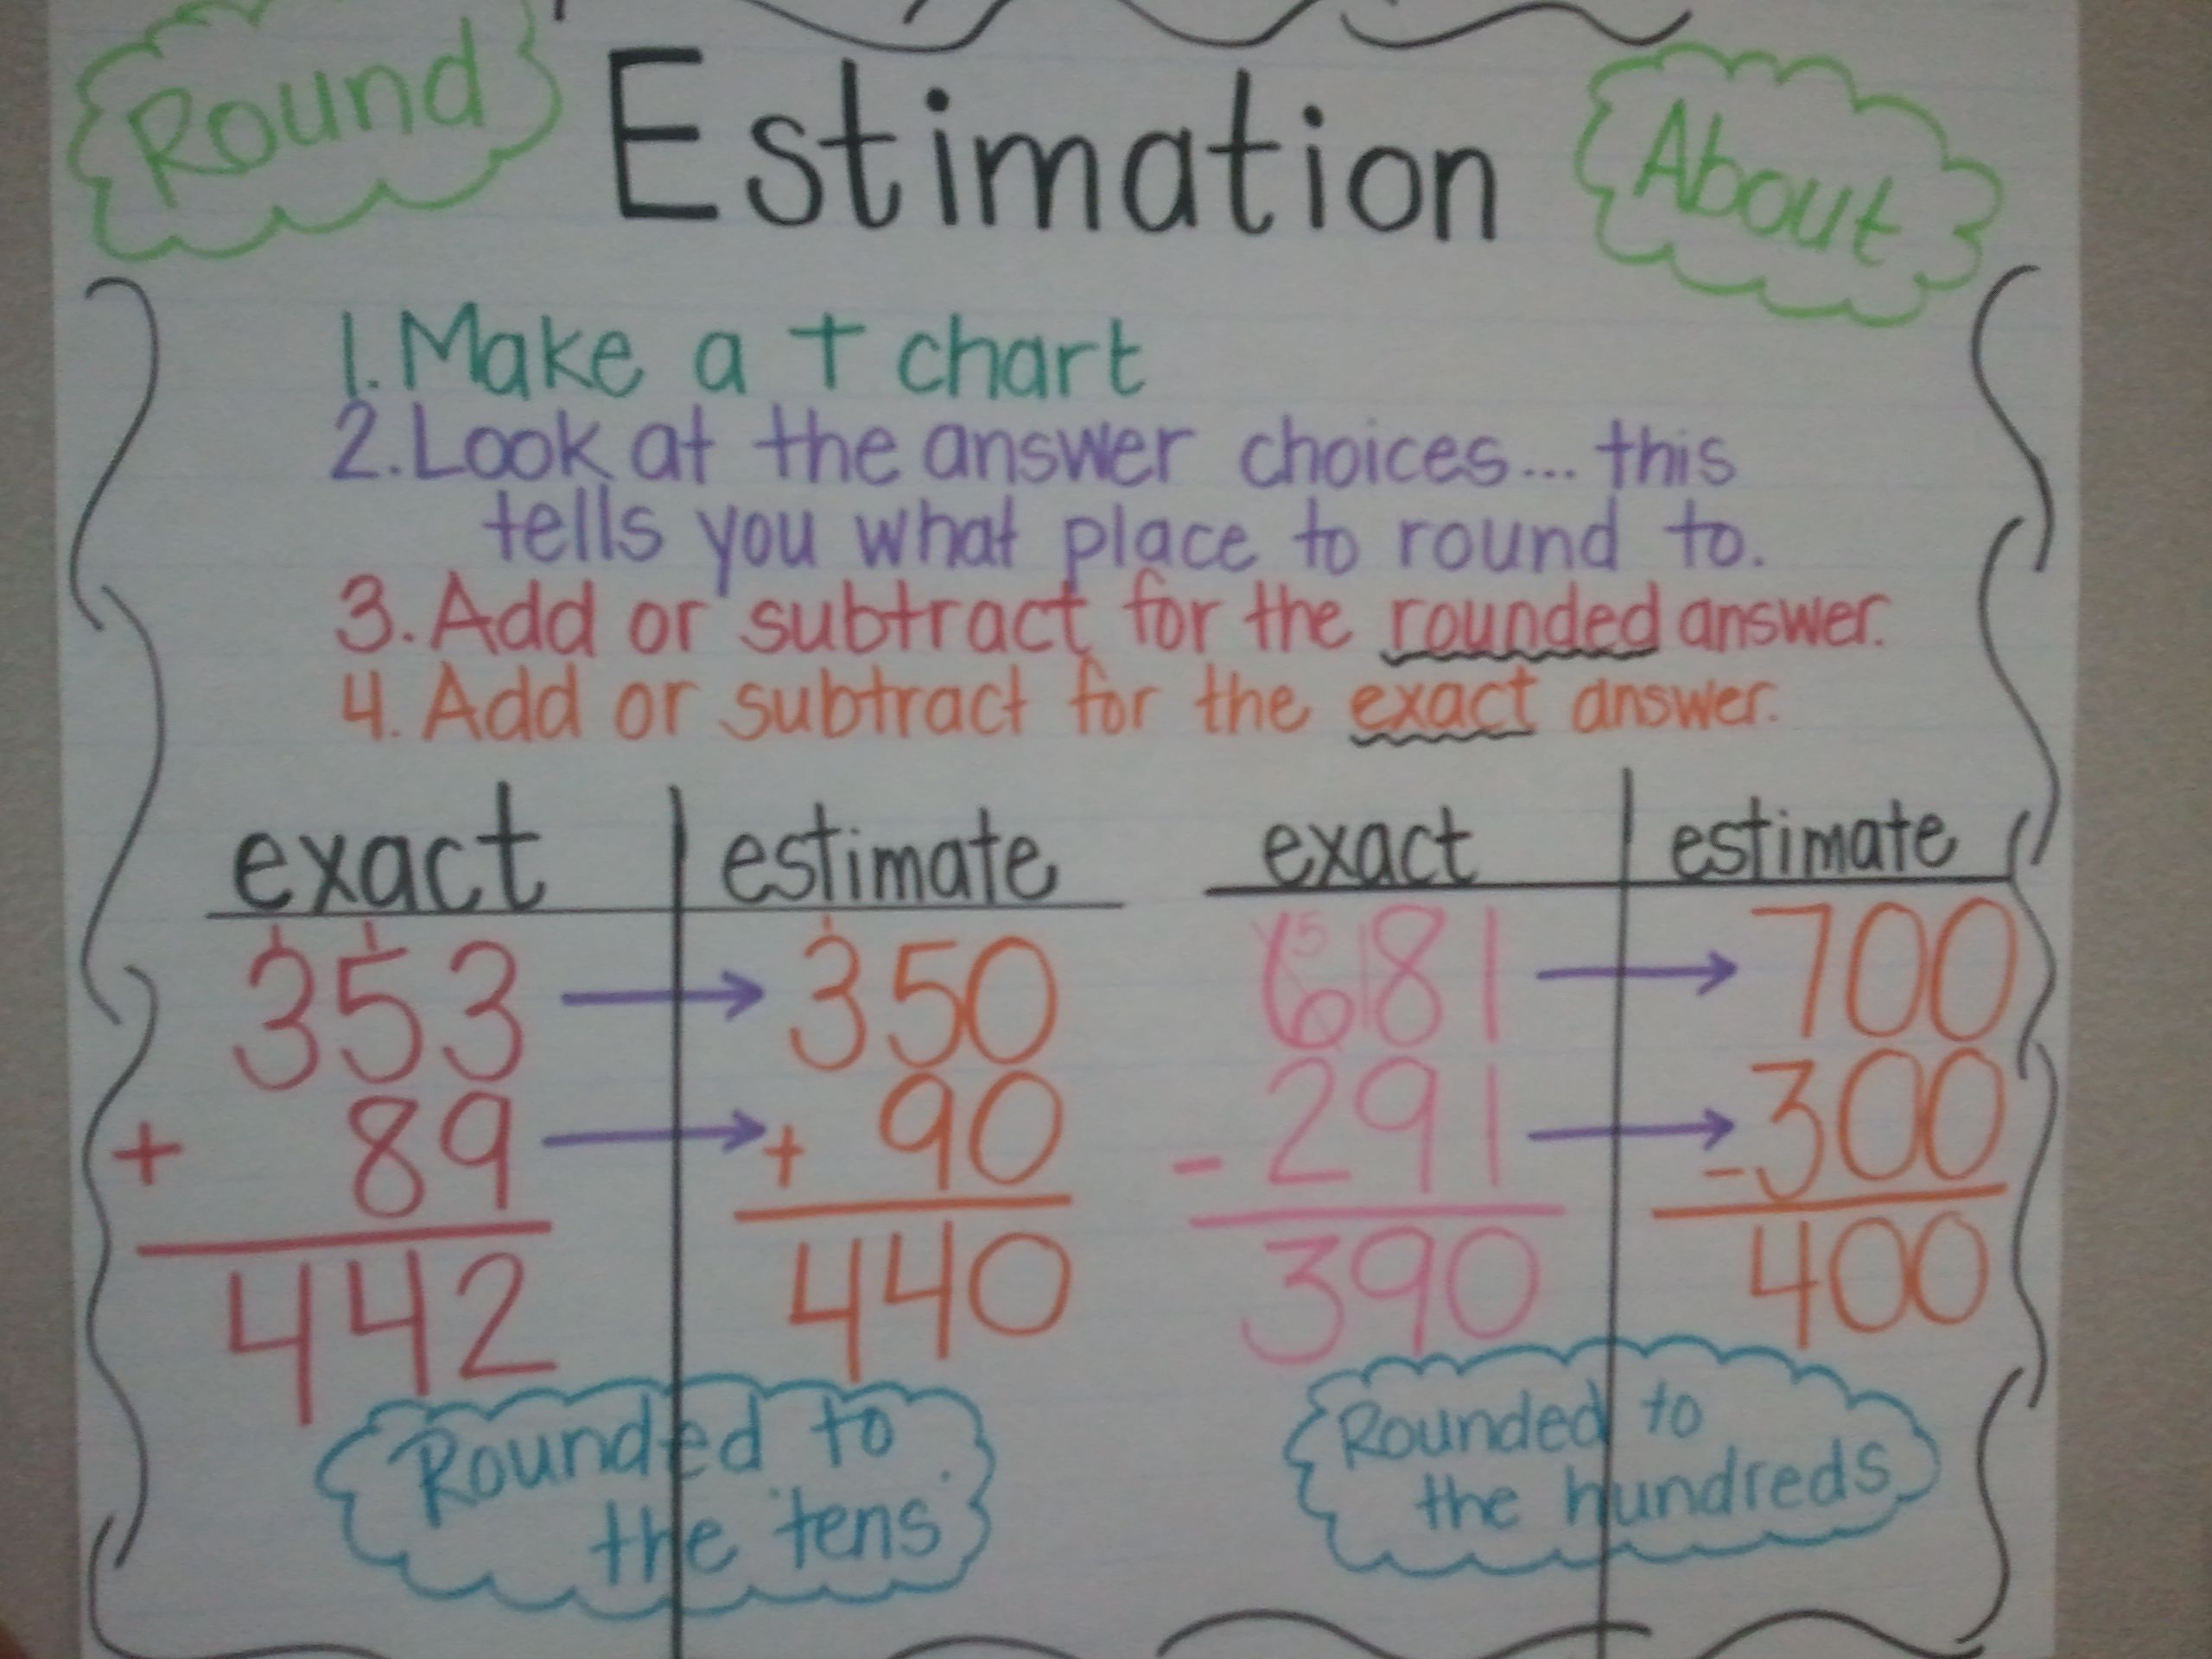 Round
Estimation
About
1. Make a T chart
2. Look at the answer choices... this
tells you what place to round to.
3. Add or subtract for the rounded answer.
4. Add or subtract for the exact answer.
exact estimate
1 1 1
353 350
+ 89 + 90
442 440
Rounded to
the tens
exact estimate
5 1
681 700
- 291 - 300
390 400
Rounded to
the hundreds